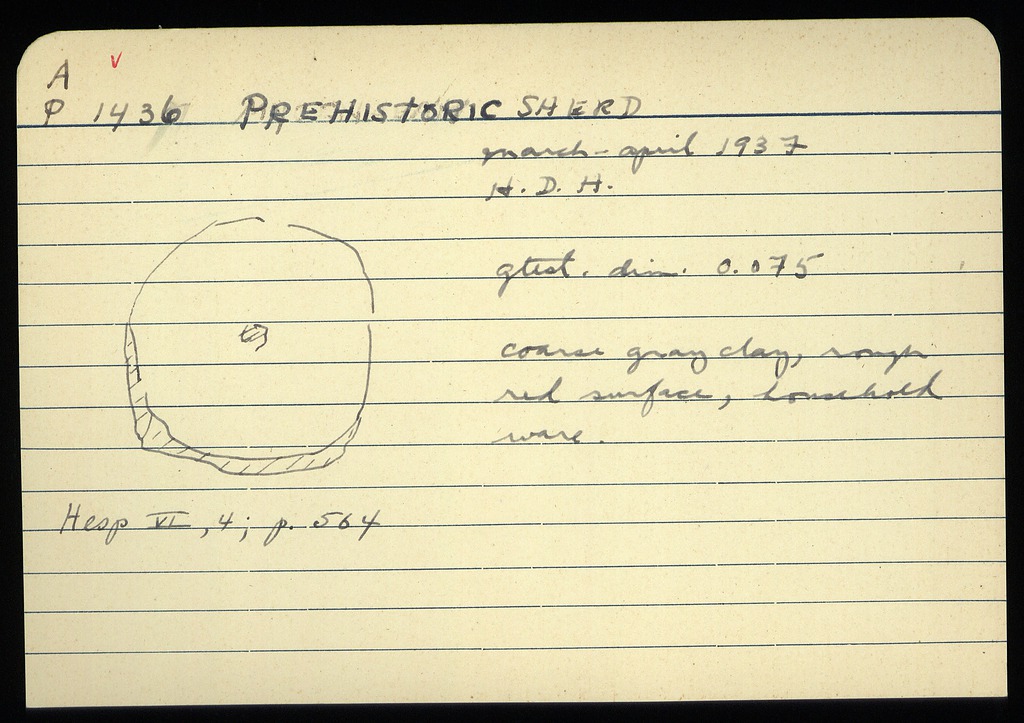 A v
P 1436 PREHISTORIC SHERD
march - april 1937
H. D. H.
gtest. dim. 0.075
coarse gray clay, rough
red surface, household
ware.
Hesp VI, 4; p. 564